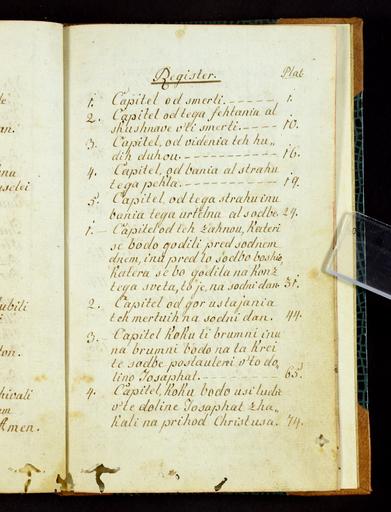 Register. Plat
1. Capitel od smerti. 1.
2. Capitel od tega fehtania al
skushnave v'ti smerti. 10.
3. Capitel, od videnia teh hu„
dih duhou. 16.
4. Capitel, od bania al strahu
tega pekla. 19.
5. Capitel, od tega strahu inu
bania tega urtelna al sodbe. 24.
1. Capitel od teh zahnou, kateri
se bodo godili pred sodnem
dnem, inu pred to sodbo boshio,
katera se bo godila na konz
tega sveta, to je, na sodni dan. 31.
2. Capitel od gor ustajania
teh mertuih na sodni dan. 44.
3. Capitel koku ti brumni inu
na brumni bodo na ta krei
te sodbe postauleni v'to do„
lino Josaphat. 65.
4. Capitel, koku bodo usi ludie
v'te doline Josaphat zha„
kali na prihod Christusa. 74.
an.
inu
uselei
lubili
ton.
hivali
Amen.